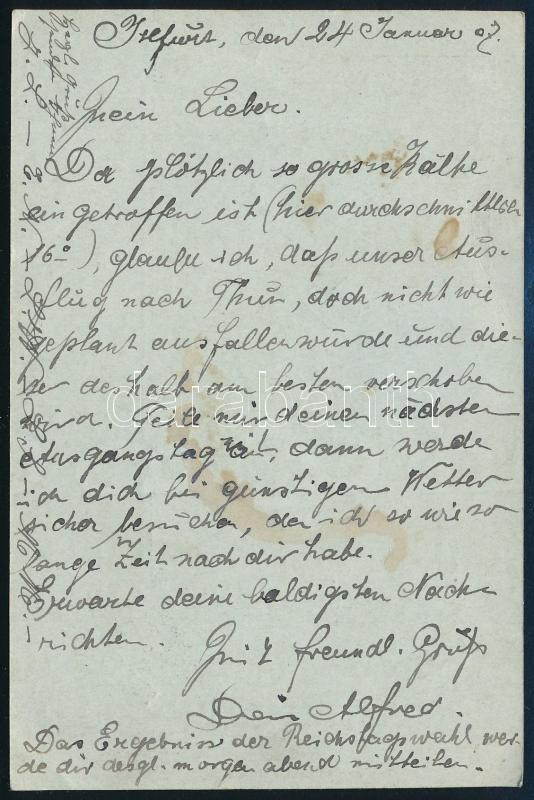 den 24 Januar 07.
Mein Lieber.
Da plötzlich so grosse Kälte
eingetroffen ist (hier durchschnittlich
16°), glaube ich, daß unser Aus-
flug nach Thun, doch nicht wie
geplant ausfallen würde und die-
ser deshalb am besten verschoben
wird. Teile mir deinen nächsten
Ausgangstag mit, dann werde
ich dich bei günstigen Wetter
sicher besuchen, da ich so wie so
lange Zeit nach dir habe.
Erwarte deine baldigsten Nach-
richten.
Mit freundl. Gruß
Dein Alfred.
Das Ergebniss der Reichstagswahl, wer-
de dir desgl. morgen abend mitteilen.
darabanth